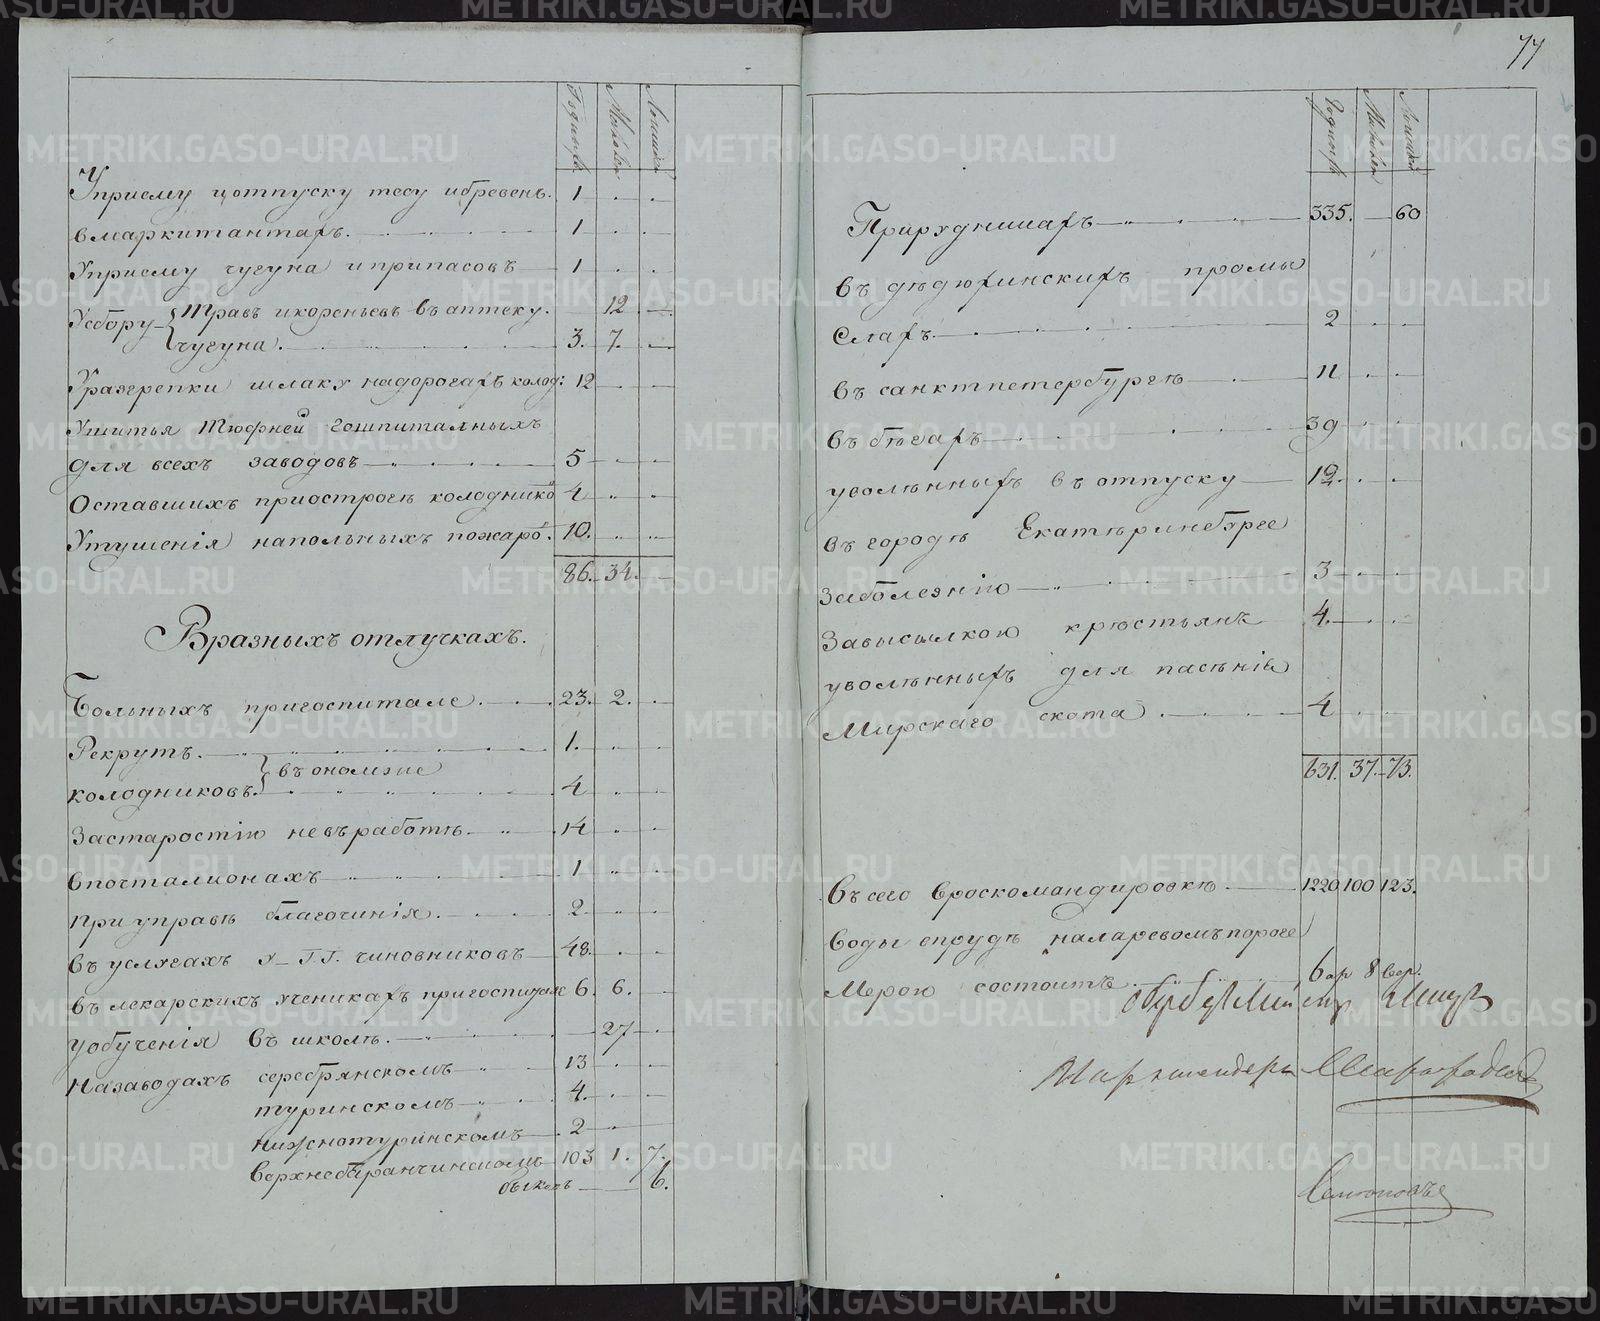 Годныхъ Малолет Лошадей
Уприему иотпуску тесу ибревенъ. 1
вмаркитантахъ. 1
Уприему чугуна иприпасовъ 1
Усбору травъ икореньевъ въ аптеку. 12
чугуна. 3. 7.
Уразгрепки шлаку надорогахъ колод: 12
Ушитья тюфней гошпиталныхъ
для всехъ заводовъ 5
Оставшихъ приостроге колоднико 4
Утушенія напольныхъ пожаро. 10.
86. 34.
Вразныхъ отлучкахъ.
Больныхъ пригоспитале 23. 2.
Рекрутъ. 1.
въ
колодниковъ. 4
Застаростію невъработѣ 14
впочталионахъ 1
При управѣ благочинія. 2
въ услугахъ у Гг. чиновниковъ 48.
въ лекарскихъ ученикахъ пригоспитале 6. 6.
уобученія въ школѣ. 27
Назаводахъ серебрянскомъ 13
туринскомъ 4.
нижнотуринскомъ 2
верхнебаранчинскомъ 103 1. 7.
быковъ 6.
77
Годныхъ Малолет Лошадей
Прирудникахъ 335. 60
въ дѣдюхинскихъ промы
слахъ 2
въ санктпетербургѣ 11
въ бѣгахъ 39
уволѣнныхъ въ отпуску 12.
въ городѣ Екатѣринебурге
Заболезнію 3
Завысылкою крѣстьянъ 4.
уволѣнныхъ для пасѣнія
Мирскаго скота. 4
631. 37. 73.
Въсего вроскомандировкѣ 1220 100 123.
Воды впрудѣ наларевомъпороге
Мерою состоитъ 6 ар 8 вер.
Маркшендеръ